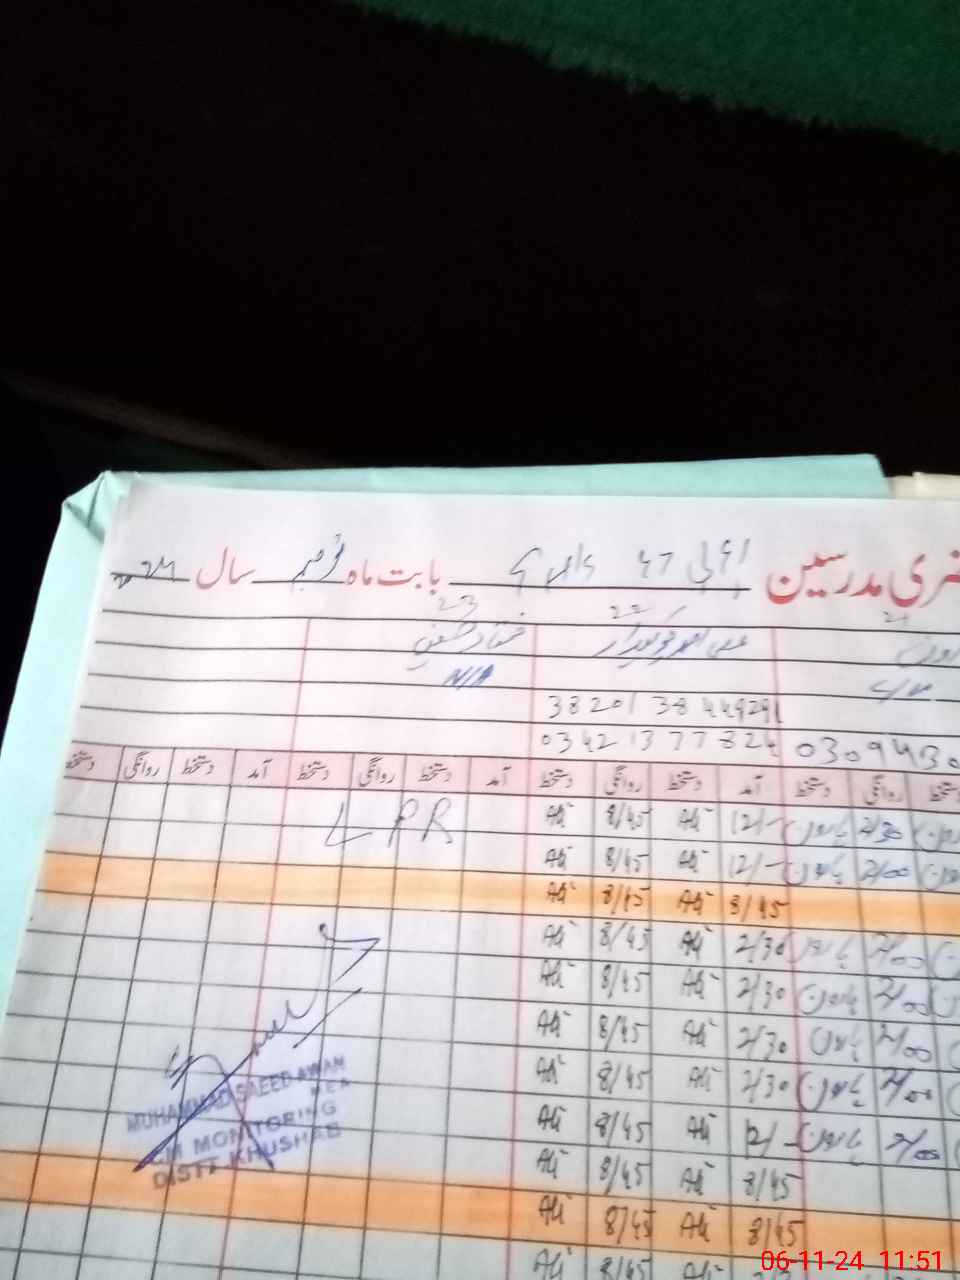 ضری مدرسین 47 بابت ماہ نومبر سال
21 22 23
N/A
38201 38 449291
0342 1377824 03094130
دستخط روانگی دستخط آمد دستخط روانگی دستخط آمد دستخط روانگی دستخط
2/30 ہارون 12/- Ali 8/45 Ali LPR
2/00 ہارون 12/- Ali 8/45 Ali
8/45 Ali 8/45 Ali
2/00 ہارون 2/30 Ali 8/45 Ali
2/00 ہارون 2/30 Ali 8/45 Ali
2/00 ہارون 2/30 Ali 8/45 Ali
2/00 ہارون 2/30 Ali 8/45 Ali
2/00 ہارون 12/- Ali 8/45 Ali
8/45 Ali 8/45 Ali
8/45 Ali 8/45 Ali
Ali 8/45 Ali
MUHAMMAD SAEED AWAN
MEA
MONITORING
DISTT KHUSHAB
06-11-24 11:51